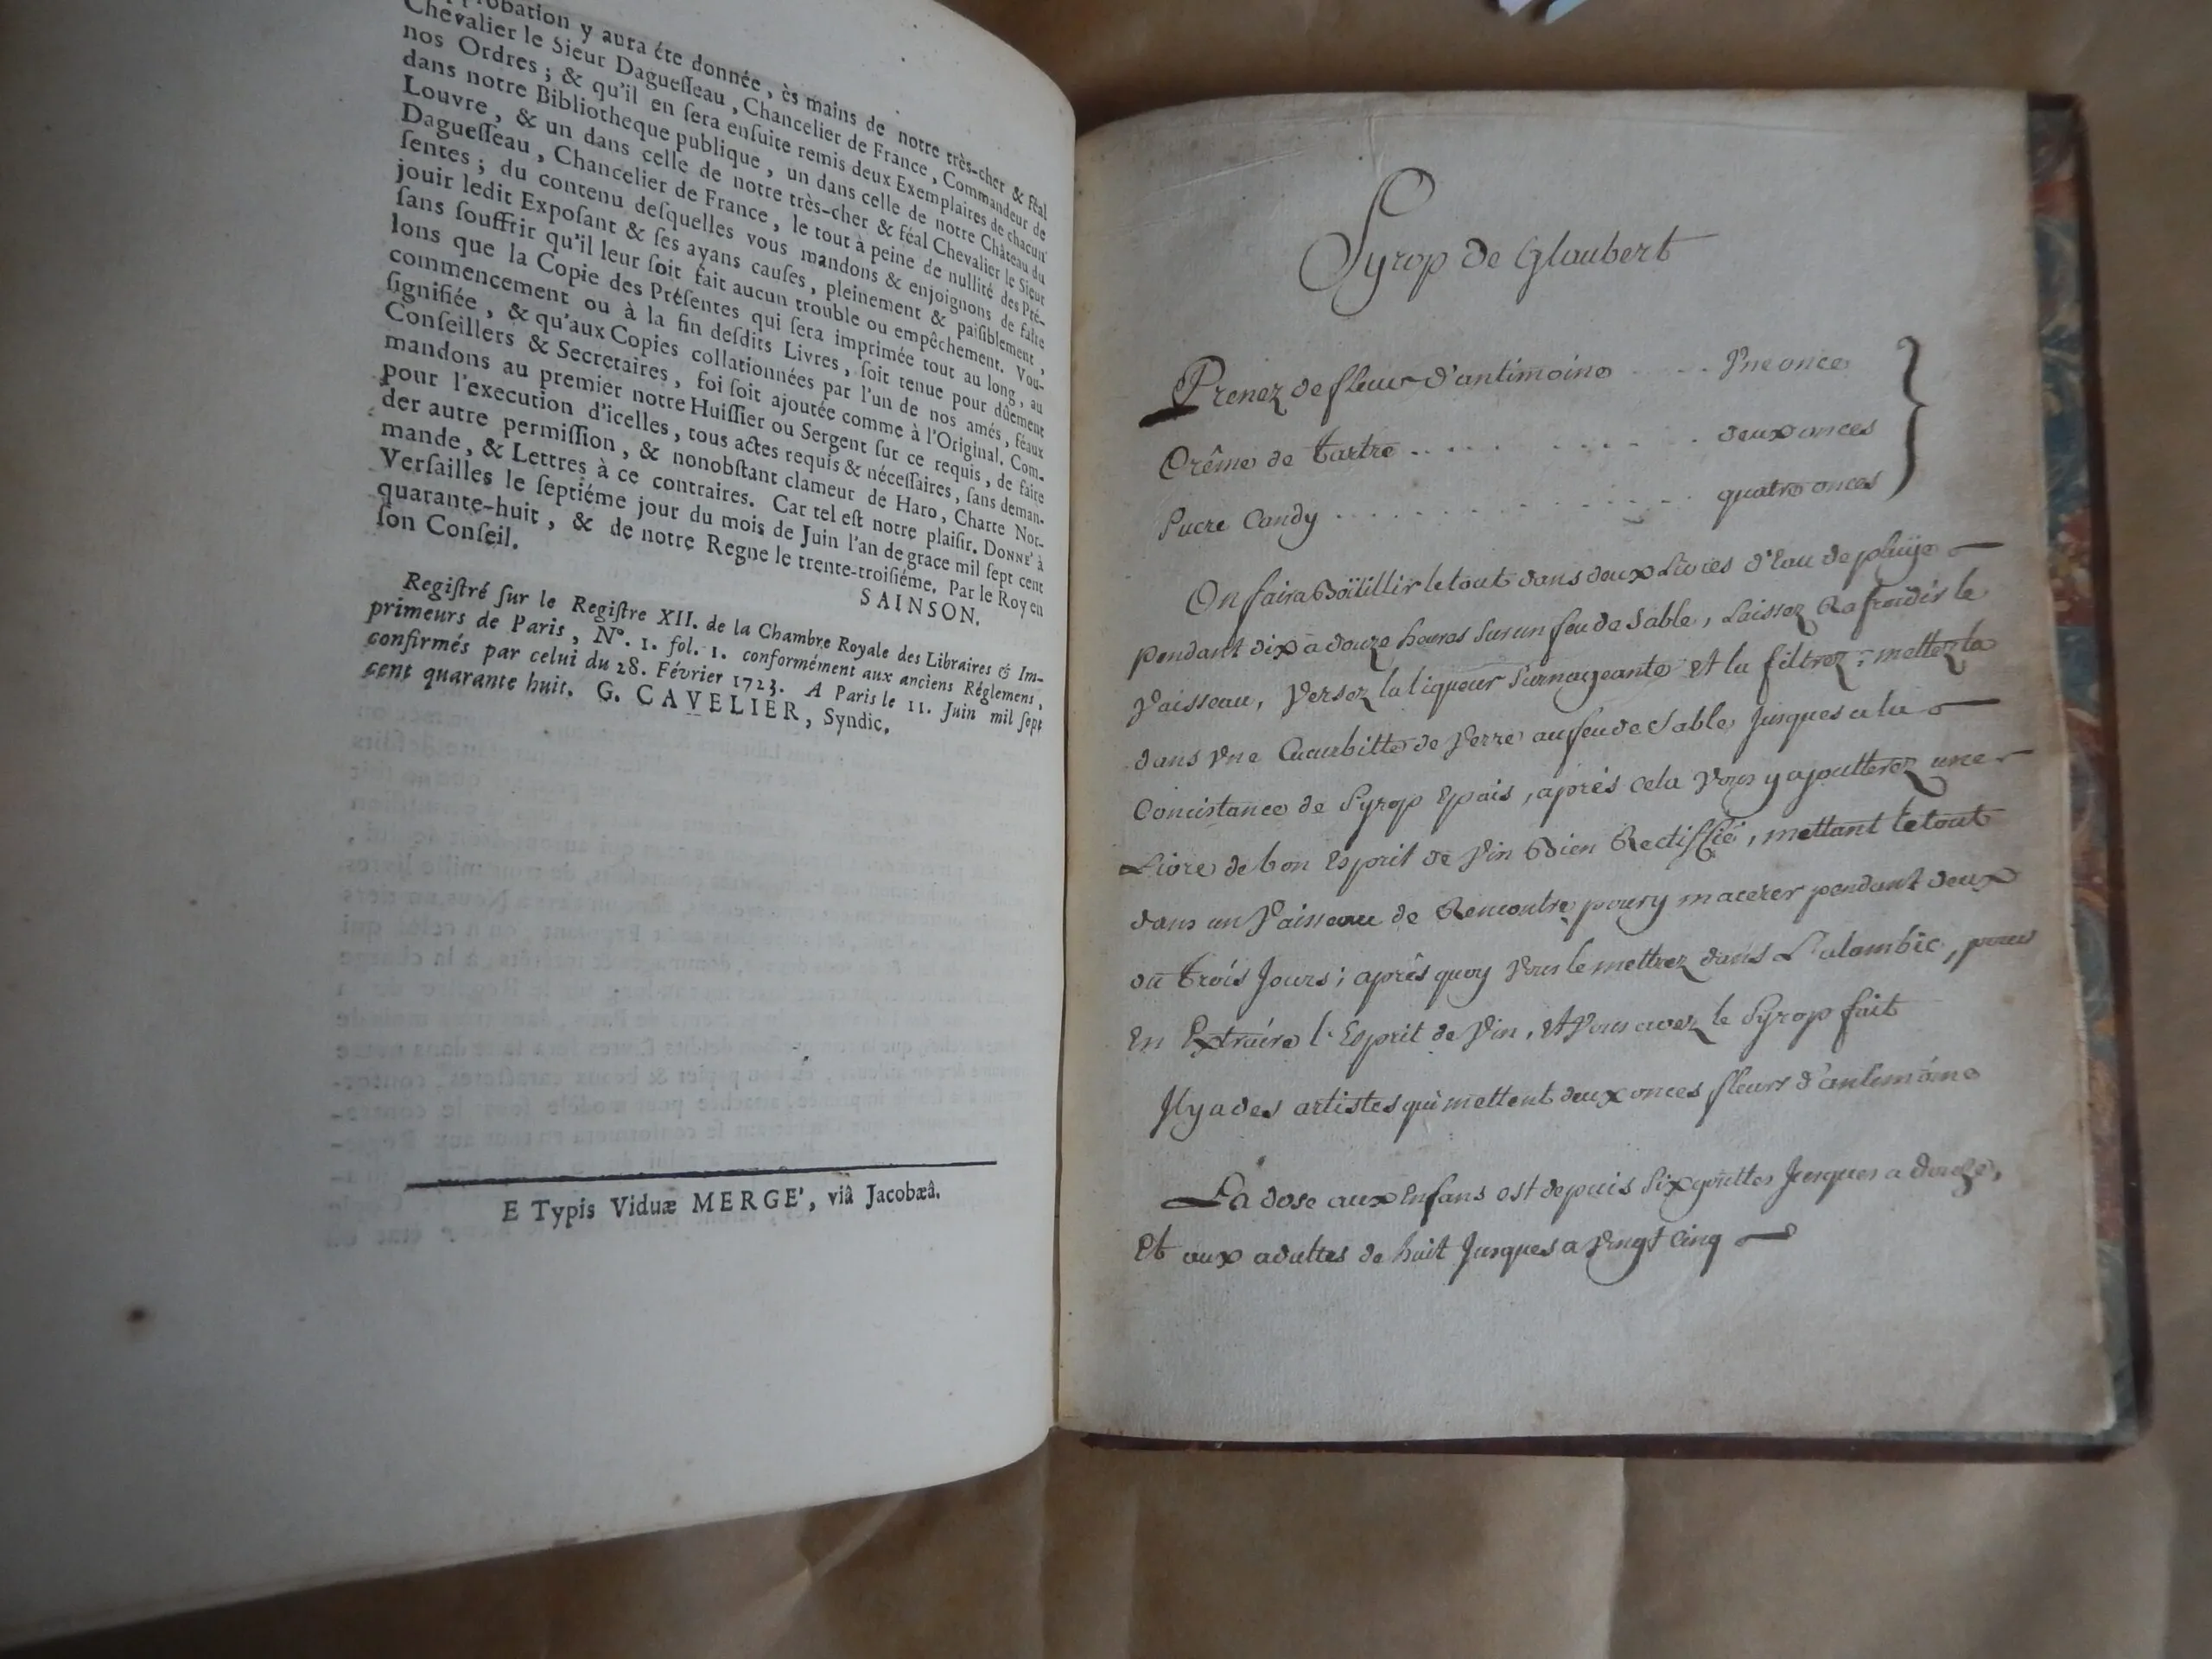 probation y aura éte donnée, ès mains de notre très-cher & féal
Chevalier le Sieur Dagueſſeau, Chancelier de France, Commandeur de
nos Ordres; & qu'il en ſera enſuite remis deux Exemplaires de chacun
dans notre Bibliotheque publique, un dans celle de notre Château du
Louvre, & un dans celle de notre très-cher & féal Chevalier le Sieur
Dagueſſeau, Chancelier de France, le tout à peine de nullité des Pré-
ſentes; du contenu deſquelles vous mandons & enjoignons de faire
jouir ledit Expoſant & ſes ayans cauſes, pleinement & paiſiblement,
ſans ſouffrir qu'il leur ſoit fait aucun trouble ou empêchement. Vou-
lons que la Copie des Préſentes qui ſera imprimée tout au long, au
commencement ou à la fin deſdits Livres, ſoit tenue pour dûement
ſignifiée, & qu'aux Copies collationnées par l'un de nos amés, féaux
Conſeillers & Secretaires, foi ſoit ajoutée comme à l'Original. Com-
mandons au premier notre Huiſſier ou Sergent ſur ce requis, de faire
pour l'execution d'icelles, tous actes requis & néceſſaires, ſans deman-
der autre permiſſion, & nonobſtant clameur de Haro, Charte Nor-
mande, & Lettres à ce contraires. Car tel eſt notre plaiſir. DONNE' à
Verſailles le ſeptiéme jour du mois de Juin l'an de grace mil ſept cent
quarante-huit, & de notre Regne le trente-troiſiéme. Par le Roy en
ſon Conſeil.
SAINSON.
Regiſtré ſur le Regiſtre XII. de la Chambre Royale des Libraires & Im-
primeurs de Paris, N°. 1. fol. 1. conformément aux anciens Réglemens,
confirmés par celui du 28. Février 1723. A Paris le 11. Juin mil ſept
cent quarante huit. G. CAVELIER, Syndic.
E Typis Viduæ MERGE', viâ Jacobæâ.
Syrop de Glaubert
Prenez de fleur d'antimoine . . . . Vne once
Crême de tartre . . . . . . . . deux onces
Sucre Candy . . . . . . . . . . quatre onces
On faira Boüillir le tout dans deux Livres d'Eau de pluÿe
pendant dix a douze heures sur un feu de Sable, Laissez Rafroidir le
Vaisseau, Versez la liqueur Surnageante et la filtrez; mettez la
dans Vne Cucurbitte de Verre au feu de Sable, Jusques a la
Concistance de Syrop Epais, aprés cela Vous y ajoutterez une
Livre de bon Esprit de Vin Bien Rectiffié, mettant le tout
dans un Vaisseau de Rencontre pour y macerer pendant deux
ou trois Jours; aprês quoy Vous le mettrez dans L'alambic, pour
En Extraire l'Esprit de Vin, et Vous avez le Syrop fait
Jl y a des artistes qui mettent deux onces fleurs d'antimoine
La dose aux Enfans est depuis Six gouttes Jusques a douze,
Et aux adultes de huit Jusques a Vingt Cinq